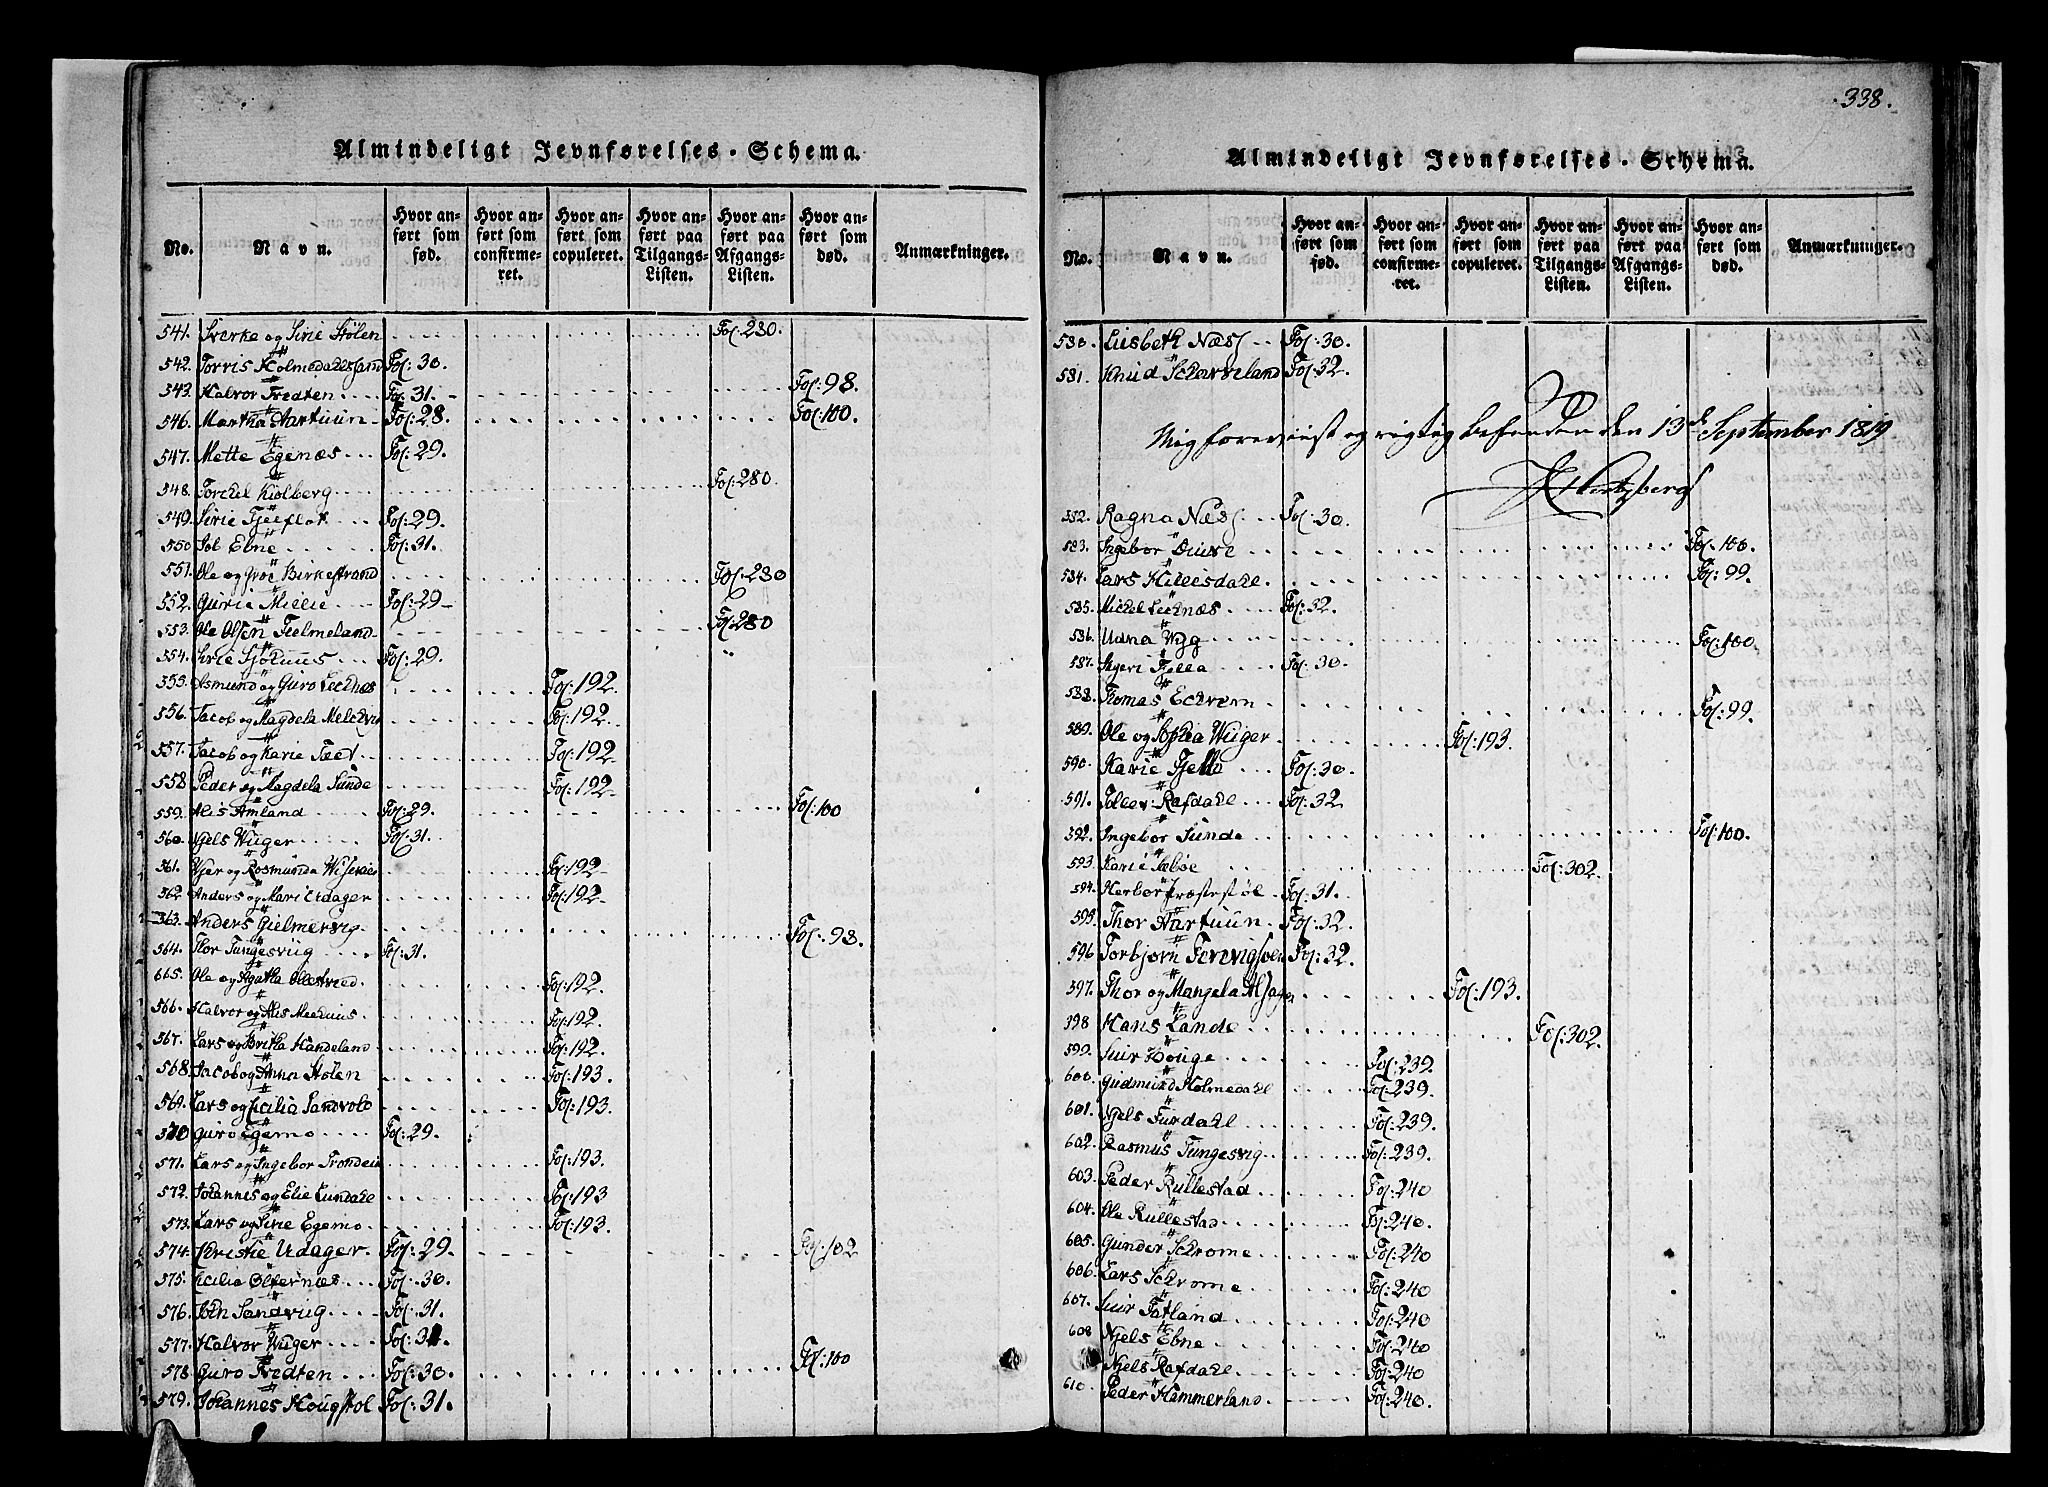 338.
Almindeligt Jevnførelses-Schema.
No. Navn. Hvor anført som fød. Hvor anført som confirmeret. Hvor anført som copuleret. Hvor anført paa Tilgangs-Listen. Hvor anført paa Afgangs-Listen. Hvor anført som død. Anmærkninger.
541. Sverke og Sirie Stölen Fol: 280.
542. Torris Holmedahlssand Fol: 30.
543. Halvor Fredten Fol: 31. Fol: 98.
546. Martha Aartuun Fol: 28. Fol: 100.
547. Mette Egenæs Fol: 29.
548. Torchel Kiolberg Fol: 280.
549. Sirie Fjeeflot Fol: 29.
550. Job Ebne Fol: 31.
551. Ole og Groe Birkestrand Fol: 280
552. Gurie Millie Fol: 29
553. Ole Olsen Feelmeland Fol: 280
554. Sirie Fol: 29.
555. Asmund og Guro Lechnæs Fol: 192.
556. Jacob og Magdela Fol: 192.
557. Jacob og Karie Teet Fol: 192
558. Peder og Magdela Sunde Fol: 192
559. Alis Amland Fol: 29. Fol: 100
560. Njels Wuger Fol: 31.
561. og Rosmunda Fol: 192
562. Anders og Mari Udager Fol: 192
563. Anders Gielmervig Fol: 98.
564. Thor Tungesvug Fol: 31.
565. Ole og Agatha Fol: 192.
566. Halvor og Alis Fol: 192.
567. Lars og Britha Handeland Fol: 192.
568. Jacob og Anna Stölen Fol: 193.
569. Lars og Cicilia Sandvold Fol: 193.
570 Guro Egemo Fol: 29.
571. Lars og Ingebor Fol: 193.
572. Johannes og Elie Lundahl Fol: 193
573. Lars og Sirie Egemo Fol: 193.
574. Christie Udager Fol: 29. Fol: 102
575. Cicilia Ølfernæs Fol: 30.
576. John Sandvug Fol: 31.
577. Halvor Wuger Fol: 31.
578. Guro Fredten Fol: 30. Fol: 100
579. Johannes Hougstol Fol: 31.
Almindeligt Jevnførelses-Schema.
No. Navn. Hvor anført som fød. Hvor anført som confirmeret. Hvor anført som copuleret. Hvor anført paa Tilgangs-Listen. Hvor anført paa Afgangs-Listen. Hvor anført som død. Anmærkninger.
580. Liisbeth Næss Fol: 30.
581. Knud Scharveland Fol: 32.
Mig foreviist og rigtig befunden den 13de September 1819
Hertzberg
582. Ragna Næss Fol: 30.
583. Ingebor Duure Fol: 100.
584. Lars Hillesdahl. Fol: 99.
585. Michel Lechnæs Fol: 32.
586. Udna Wyg Fol: 100.
587. Sigeri Fjella Fol: 30.
588. Thomas Echrem Fol: 99.
589. Ole og Wuger Fol: 193.
590. Karie Fjella Fol: 30.
591. Tollev Rafdahl Fol: 32
592. Ingebor Sunde Fol: 100.
593. Karie Fol: 302.
594. Herbor Præstestöl Fol: 31.
595. Thor Aartuun Fol: 32.
596 Torbjörn Fol: 32.
597. Thor og Mangela Alsager Fol: 193.
598 Hans Lande Fol: 302.
599. Siur Houge Fol: 239.
600. Gudmund Holmedahl Fol: 239.
601. Njels Furdahl Fol: 239.
602. Rasmus Tungesvig Fol: 239.
603. Peder Rullestad Fol: 240
604. Ole Rullestad Fol: 240.
605. Gunder Schrome Fol: 240
606. Lars Schrome Fol: 240.
607. Siur Fatland Fol: 240
608 Njels Ebne Fol: 240
Njels Rafdahl Fol: 240
610. Peder Hammerland Fol: 240.